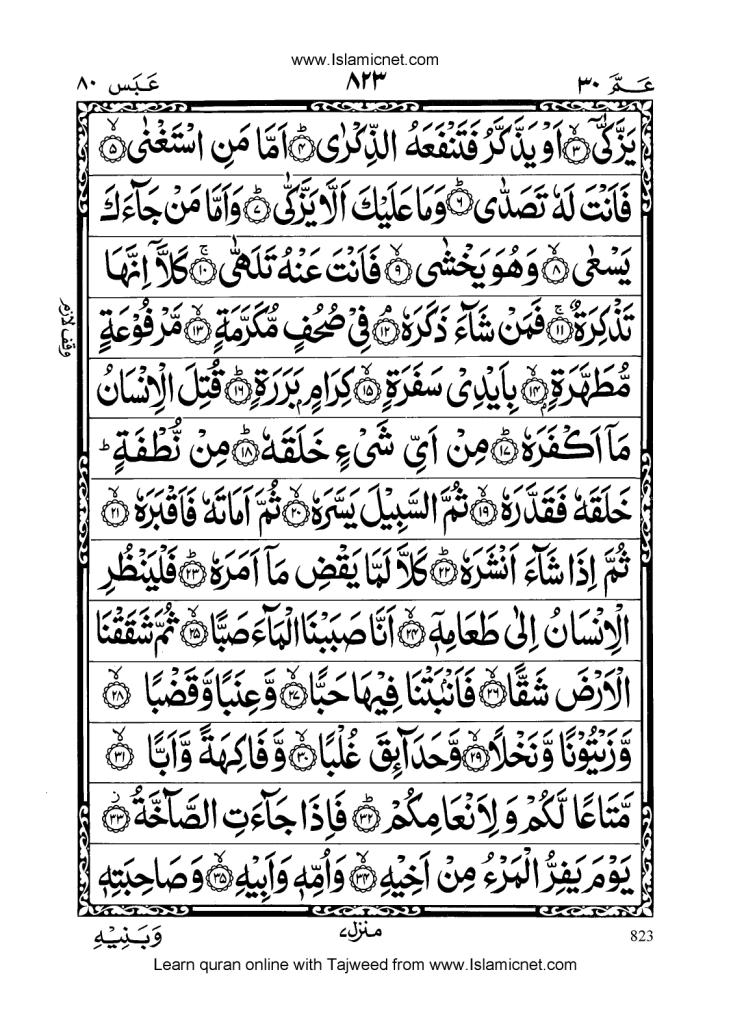 www.Islamicnet.com
عَـمَّ ٣٠ ٨٢٣ عَبَس ٨٠
يَزَّكّٰىۤ ۙ﴿۳﴾ اَوْ يَذَّكَّرُ فَتَنْفَعَهُ الذِّكْرٰى ؕ﴿۴﴾ اَمَّا مَنِ اسْتَغْنٰى ۙ﴿۵﴾
فَاَنْتَ لَهٗ تَصَدّٰى ؕ﴿۶﴾ وَمَا عَلَيْكَ اَلَّا يَزَّكّٰى ؕ﴿۷﴾ وَاَمَّا مَنْ جَآءَكَ
يَسْعٰى ۙ﴿۸﴾ وَهُوَ يَخْشٰى ۙ﴿۹﴾ فَاَنْتَ عَنْهُ تَلَهّٰى ۚ﴿۱۰﴾ كَلَّاۤ اِنَّهَا
تَذْكِرَةٌ ۚ﴿۱۱﴾ فَمَنْ شَآءَ ذَكَرَهٗ ۘ﴿۱۲﴾ فِىْ صُحُفٍ مُّكَرَّمَةٍ ۙ﴿۱۳﴾ مَّرْفُوْعَةٍ
وقف لازم
مُّطَهَّرَةٍۭ ۙ﴿۱۴﴾ بِاَيْدِىْ سَفَرَةٍ ۙ﴿۱۵﴾ كِرَامٍۭ بَرَرَةٍ ؕ﴿۱۶﴾ قُتِلَ الْاِنْسَانُ
مَاۤ اَكْفَرَهٗ ؕ﴿۱۷﴾ مِنْ اَىِّ شَىْءٍ خَلَقَهٗ ؕ﴿۱۸﴾ مِنْ نُّطْفَةٍ ؕ
خَلَقَهٗ فَقَدَّرَهٗ ۙ﴿۱۹﴾ ثُمَّ السَّبِيْلَ يَسَّرَهٗ ۙ﴿۲۰﴾ ثُمَّ اَمَاتَهٗ فَاَقْبَرَهٗ ۙ﴿۲۱﴾
ثُمَّ اِذَا شَآءَ اَنْشَرَهٗ ؕ﴿۲۲﴾ كَلَّا لَمَّا يَقْضِ مَاۤ اَمَرَهٗ ؕ﴿۲۳﴾ فَلْيَنْظُرِ
الْاِنْسَانُ اِلٰى طَعَامِهٖۤ ۙ﴿۲۴﴾ اَنَّا صَبَبْنَا الْمَآءَ صَبًّا ۙ﴿۲۵﴾ ثُمَّ شَقَقْنَا
الْاَرْضَ شَقًّا ۙ﴿۲۶﴾ فَاَنْۢبَتْنَا فِيْهَا حَبًّا ۙ﴿۲۷﴾ وَّعِنَبًا وَّقَضْبًا ۙ﴿۲۸﴾
وَّزَيْتُوْنًا وَّنَخْلًا ۙ﴿۲۹﴾ وَّحَدَآئِقَ غُلْبًا ۙ﴿۳۰﴾ وَّفَاكِهَةً وَّاَبًّا ۙ﴿۳۱﴾
مَّتَاعًا لَّكُمْ وَلِاَنْعَامِكُمْ ؕ﴿۳۲﴾ فَاِذَا جَآءَتِ الصَّآخَّةُ ز﴿۳۳﴾
يَوْمَ يَفِرُّ الْمَرْءُ مِنْ اَخِيْهِ ۙ﴿۳۴﴾ وَاُمِّهٖ وَاَبِيْهِ ۙ﴿۳۵﴾ وَصَاحِبَتِهٖ
823 منزل٧ وَبَنِيْهِ
Learn quran online with Tajweed from www.Islamicnet.com